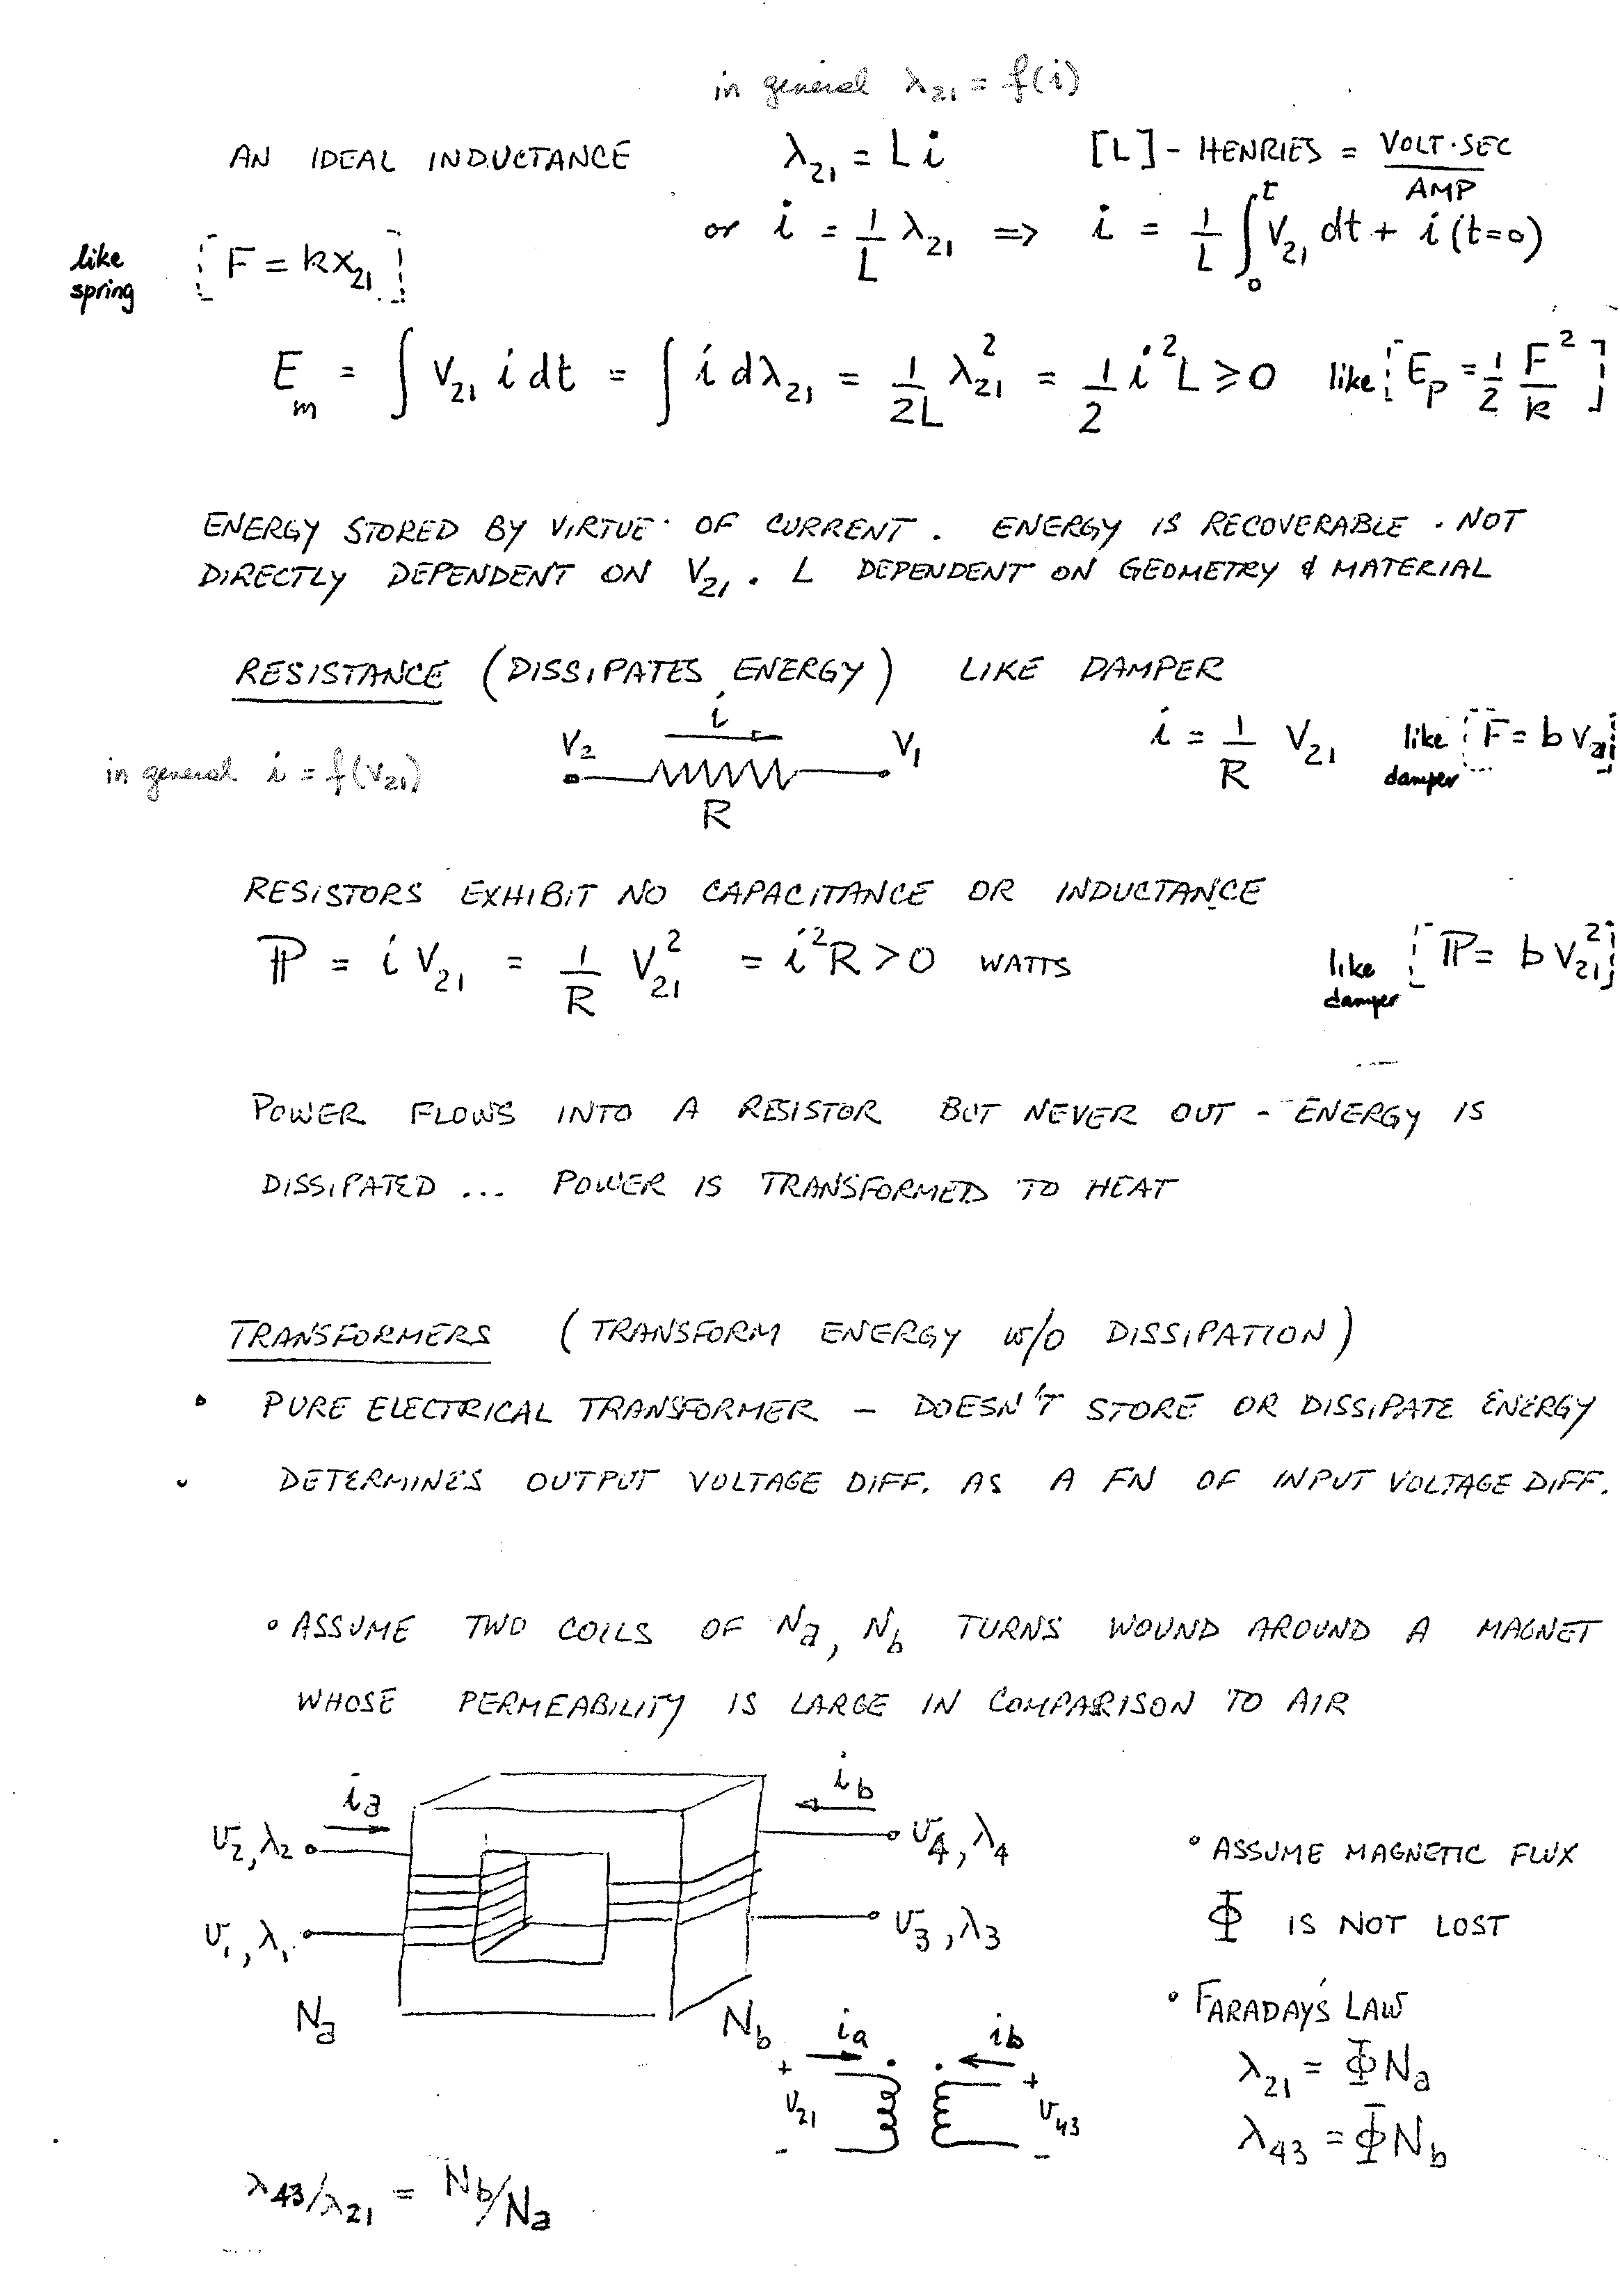 in general λ₂₁ = f(i)
AN IDEAL INDUCTANCE λ₂₁ = L i [L] - HENRIES = VOLT·SEC / AMP
or i = 1/L λ₂₁ => i = 1/L ∫₀ᵗ V₂₁ dt + i(t=0)
like spring [F = kx₂₁]
Eₘ = ∫ V₂₁ i dt = ∫ i dλ₂₁ = 1/2L λ₂₁² = 1/2 i²L ≥ 0 like [Eₚ = 1/2 F²/k]
ENERGY STORED BY VIRTUE OF CURRENT. ENERGY IS RECOVERABLE. NOT
DIRECTLY DEPENDENT ON V₂₁. L DEPENDENT ON GEOMETRY & MATERIAL
RESISTANCE (DISSIPATES ENERGY) LIKE DAMPER
i
in general i = f(V₂₁) V₂ V₁ i = 1/R V₂₁ like damper [F = b v₂₁]
R
RESISTORS EXHIBIT NO CAPACITANCE OR INDUCTANCE
ℙ = i V₂₁ = 1/R V₂₁² = i²R > 0 WATTS like damper [ℙ = b V₂₁²]
POWER FLOWS INTO A RESISTOR BUT NEVER OUT - ENERGY IS
DISSIPATED ... POWER IS TRANSFORMED TO HEAT
TRANSFORMERS (TRANSFORM ENERGY w/o DISSIPATION)
• PURE ELECTRICAL TRANSFORMER - DOESN'T STORE OR DISSIPATE ENERGY
• DETERMINES OUTPUT VOLTAGE DIFF. AS A FN OF INPUT VOLTAGE DIFF.
• ASSUME TWO COILS OF Na, Nb TURNS WOUND AROUND A MAGNET
WHOSE PERMEABILITY IS LARGE IN COMPARISON TO AIR
ia ib
v₂, λ₂ v₄, λ₄
v₁, λ₁ v₃, λ₃
Na Nb
• ASSUME MAGNETIC FLUX
Φ IS NOT LOST
• FARADAY'S LAW
λ₂₁ = ΦNa
λ₄₃ = ΦNb
ia ib
+ +
v₂₁ v₄₃
- -
λ₄₃/λ₂₁ = Nb/Na